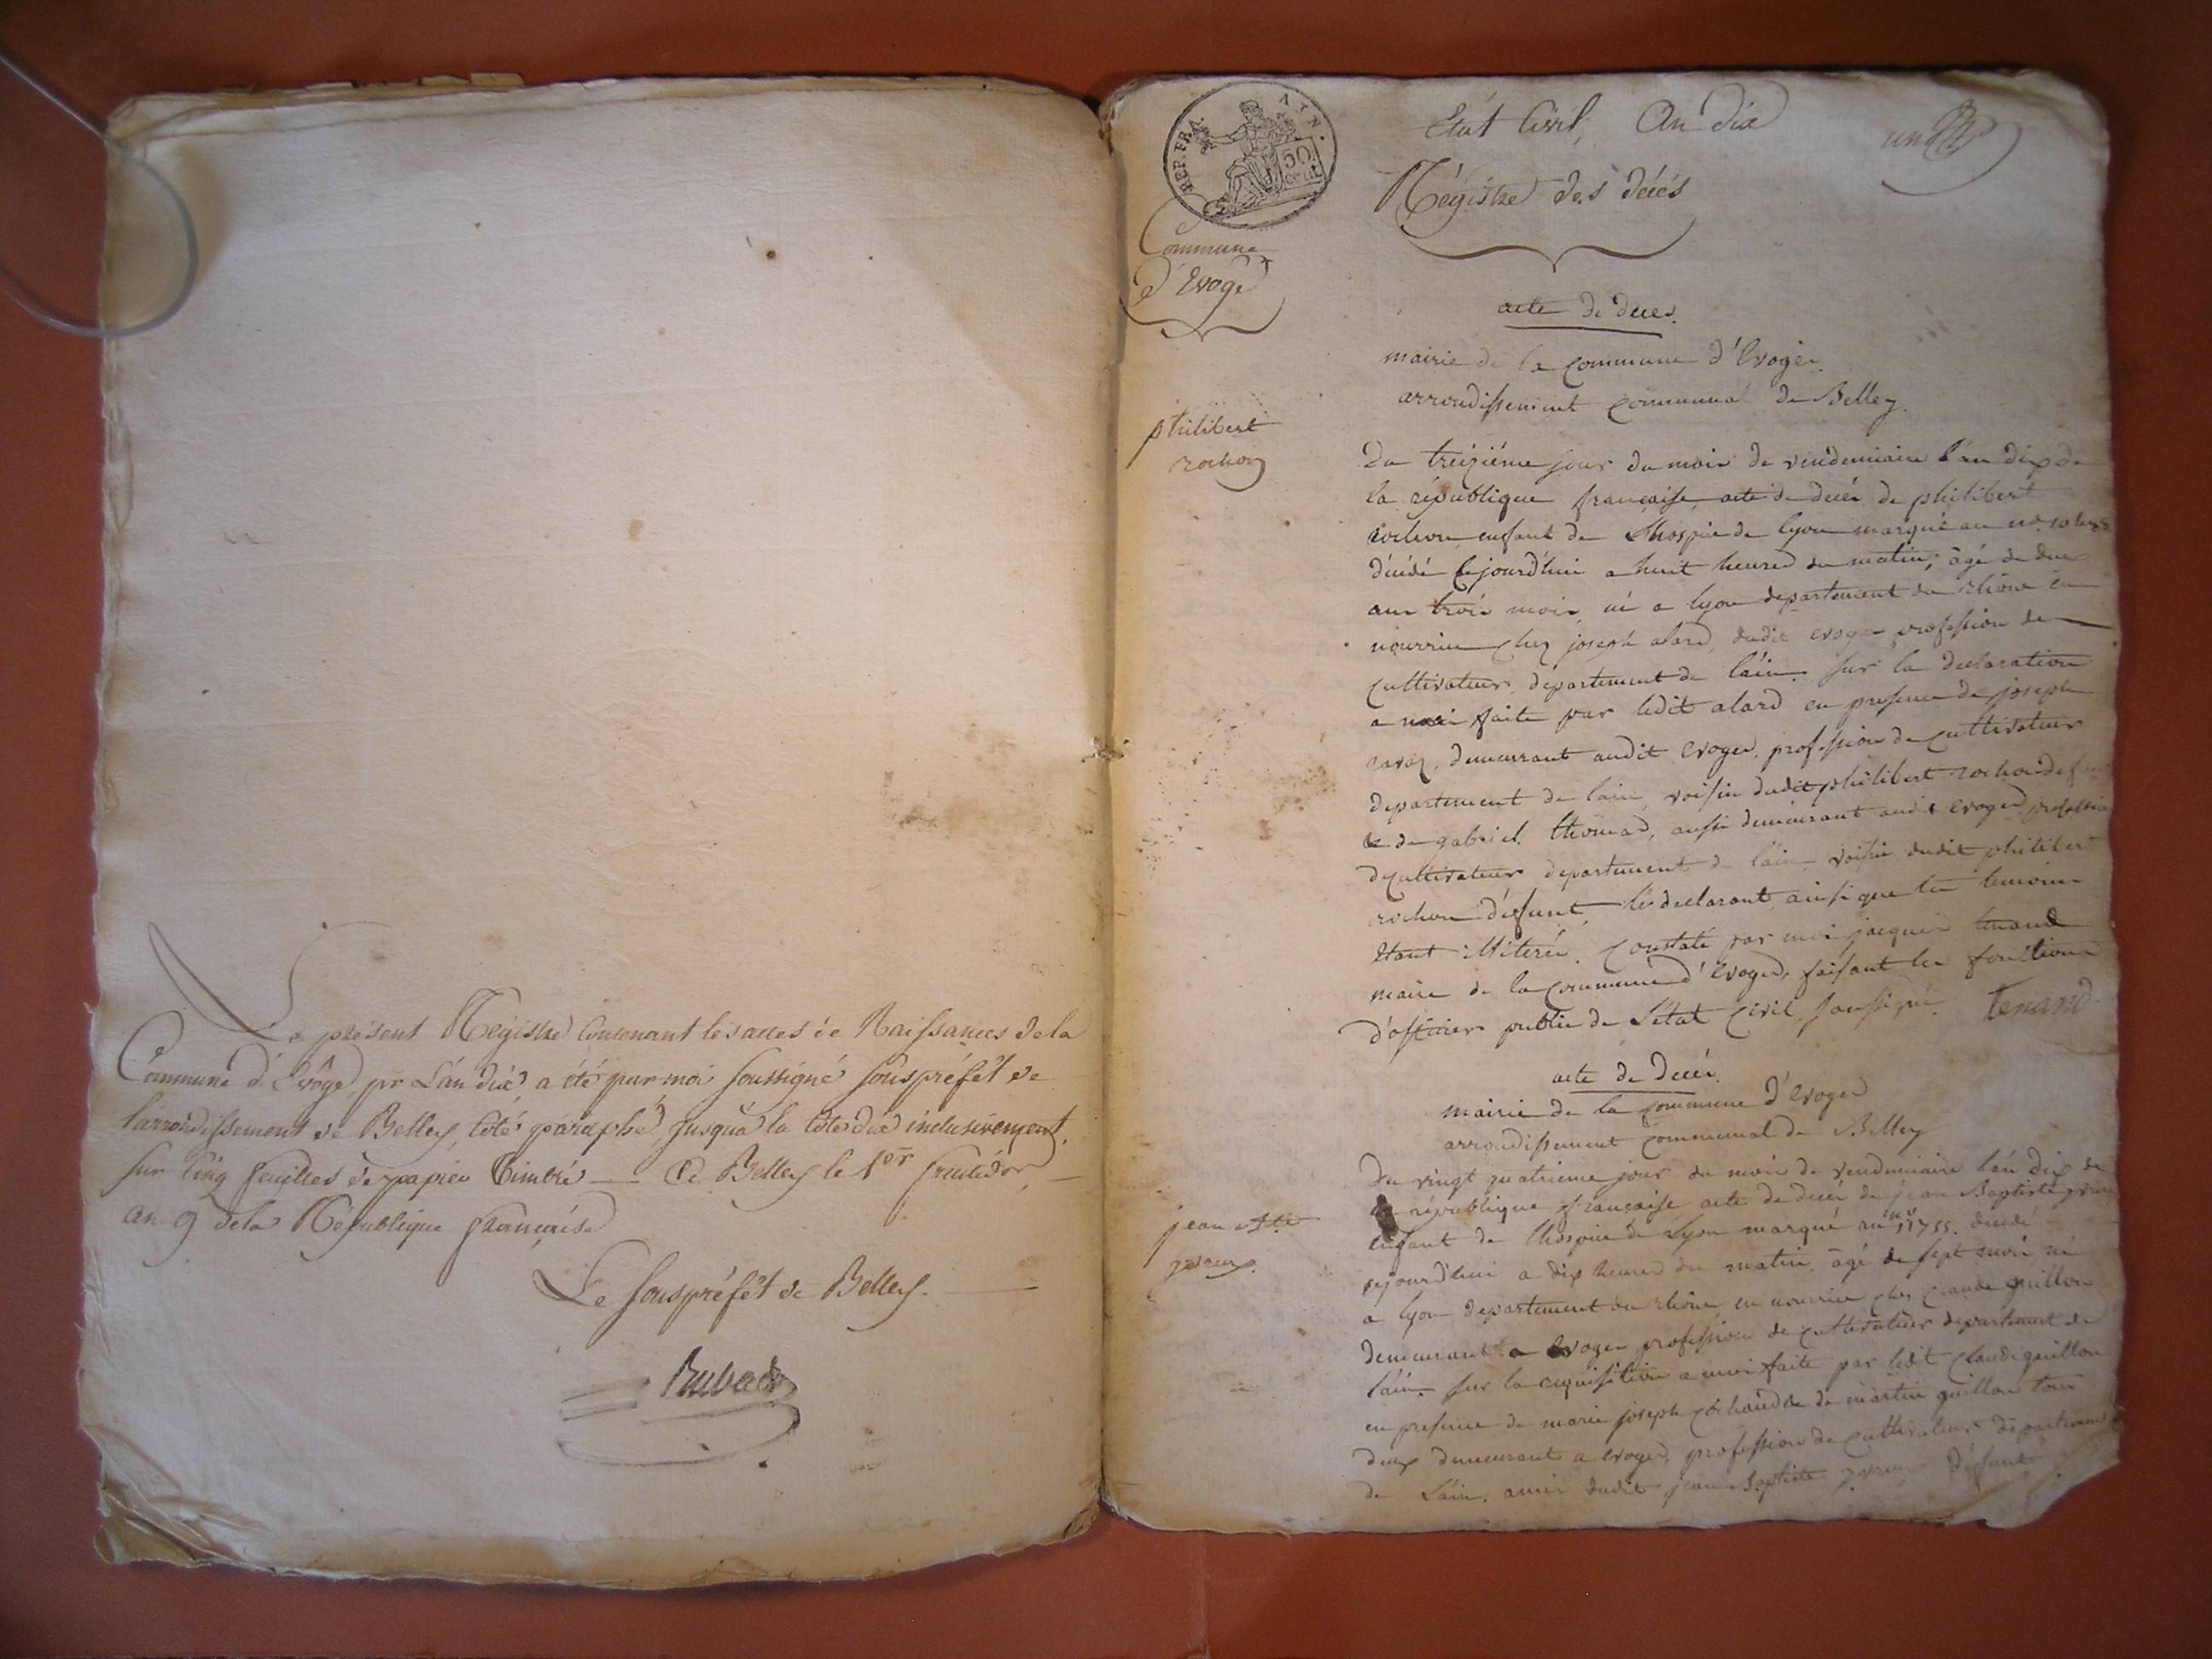 Le présent Régistre Contenant les actes de Naissances de la
Commune d'Evoge, pr L'an dix, a été par moi soussigné souspréfêt de
l'arrondissement de Belley, coté & paraphé, jusqu'a la cote dix inclusivement,
sur cinq feuilles de papier timbré — A Belley le 1er fructidor,
an 9 de la République française
Le souspréfêt de Belley.
REP. FRA. AIN.
50 cent
Etat Civil, An dix
un
Régistre des décés
Commune
d'Evoge
acte de deces.
mairie de la commune d'Evoges
arrondissement communal de Belley.
philibert
rochon
Du treiziéme jour du mois de vendemiaire l'an dix de
la république française, acte de decés de philibert
rochon enfant de Lhospice de lyon marqué au no.
décédé cejourd'hui a huit heures du matin; âgé de deux
ans trois mois, né a lyon departement du rhône en
nourrice chez joseph alard, dudit evoges profession de
cultivateur, departement de l'ain. sur la declaration
a moi faite par ledit alard en presence de joseph
ravoz, demeurant audit Evoges, profession de cultivateur
departement de lain, voisin dudit philibert rochon
& de gabriel thomas, aussi demeurant audit evoges, profession
de cultivateur departement de l'ain, voisin dudit philibert
rochon défunt, le declarant, ainsi que les temoins
Etant illiterés. Constaté par moi jacques tenand
maire de la commune d'Evoges, faisant les fonctions
d'officier public de L'état civil, soussigné. tenand
acte de decés.
mairie de la commune d'evoges
arrondissement communal de Belley
jean Bte
Du vingt quatrieme jour du mois de vendemiaire l'an dix de
la république française acte de decés de jean Baptiste
enfant de lhospice de Lyon marqué au no 1755. decedé
cejourd'hui a dix heures du matin, âgé de sept mois né
a lyon departement du rhône, en nourrice chez Claude guillon
demeurant a Evoges profession de cultivateur departement de
l'ain. sur la requisition a moi faite par ledit Claude guillon
en presence de marie joseph & de martin guillon tous
deux demeurants a evoges, profession de cultivateurs département
de L'ain. amis dudit jean Baptiste défunt